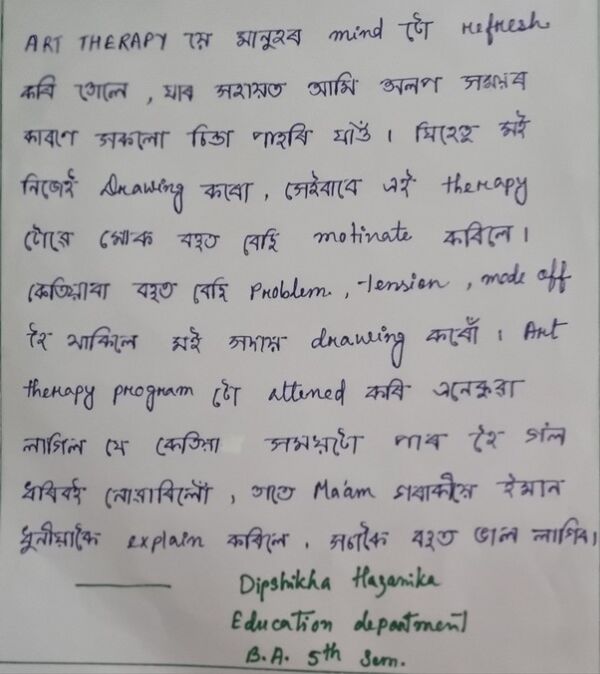 ART THERAPY য়ে মানুহৰ mind টো refresh
কৰি তোলে, যাৰ সহায়ত আমি অলপ সময়ৰ
কাৰণে সকলো চিন্তা পাহৰি যাওঁ। যিহেতু মই
নিজেই Drawing কৰো, সেইবাবে এই therapy
টোৱে মোক বহুত বেছি motinate কৰিলে।
কেতিয়াবা বহুত বেছি Problem, tension, mode off
হৈ থাকিলে মই সদায় drawing কৰোঁ। Art
therapy program টো attened কৰি এনেকুৱা
লাগিল যে কেতিয়া সময়টো পাৰ হৈ গ'ল
ধৰিবই নোৱাৰিলোঁ, তাতে Ma'am গৰাকীয়ে ইমান
ধুনীয়াকৈ explain কৰিলে, সচাকৈ বহুত ভাল লাগিল।
Dipshikha Hazarika
Education department
B.A. 5th Sem.